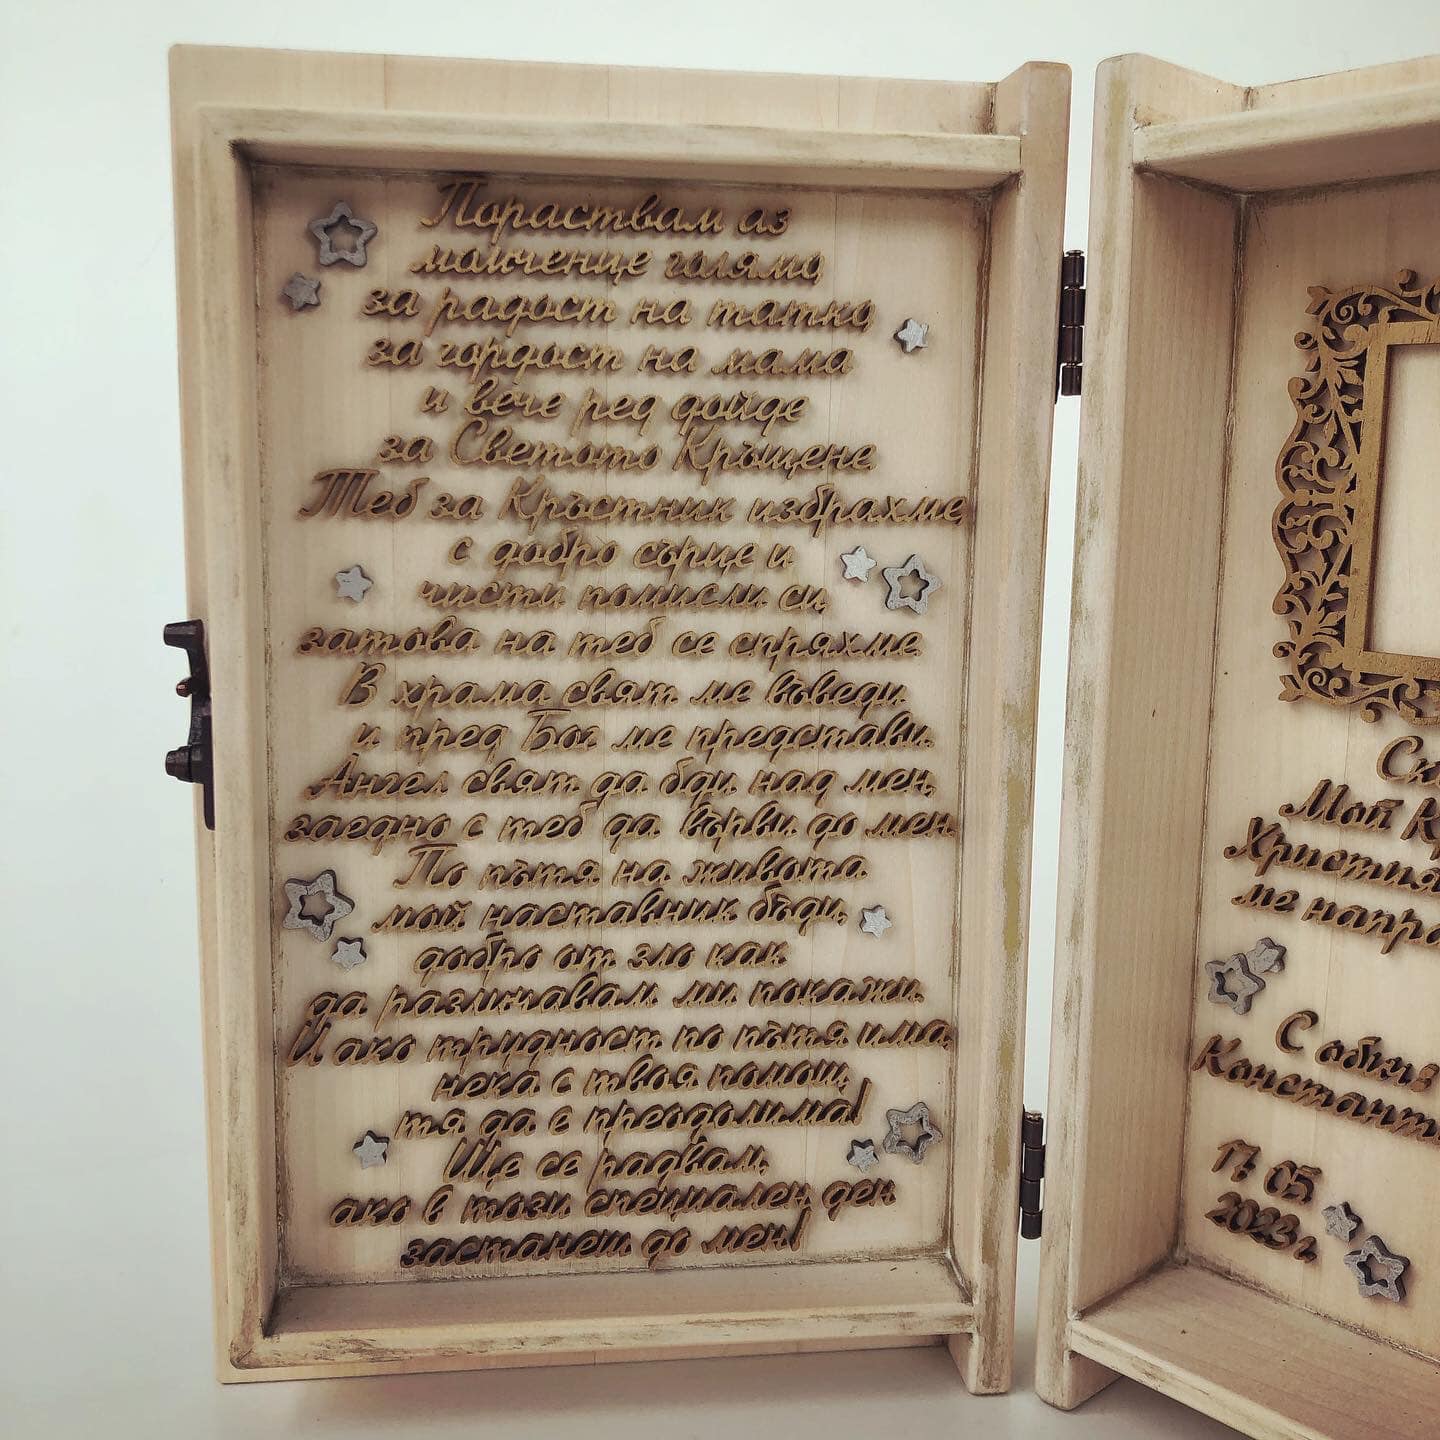 Пораствам аз
момченце голямо,
за радост на татко,
за гордост на мама
и вече ред дойде
за Светото Кръщене.
Теб за Кръстник избрахме,
с добро сърце и
чисти помисли си,
затова на теб се спряхме.
В храма свят ме въведи
и пред Бог ме представи.
Ангел свят да бди над мен,
заедно с теб да върви до мен.
По пътя на живота
мой наставник бъди,
добро от зло как
да различавам ми покажи.
И ако трудност по пътя има,
нека с твоя помощ,
тя да е преодолима!
Ще се радвам,
ако в този специален ден
застанеш до мен!
Мой
ме
С обич:
17.05.
2023г.